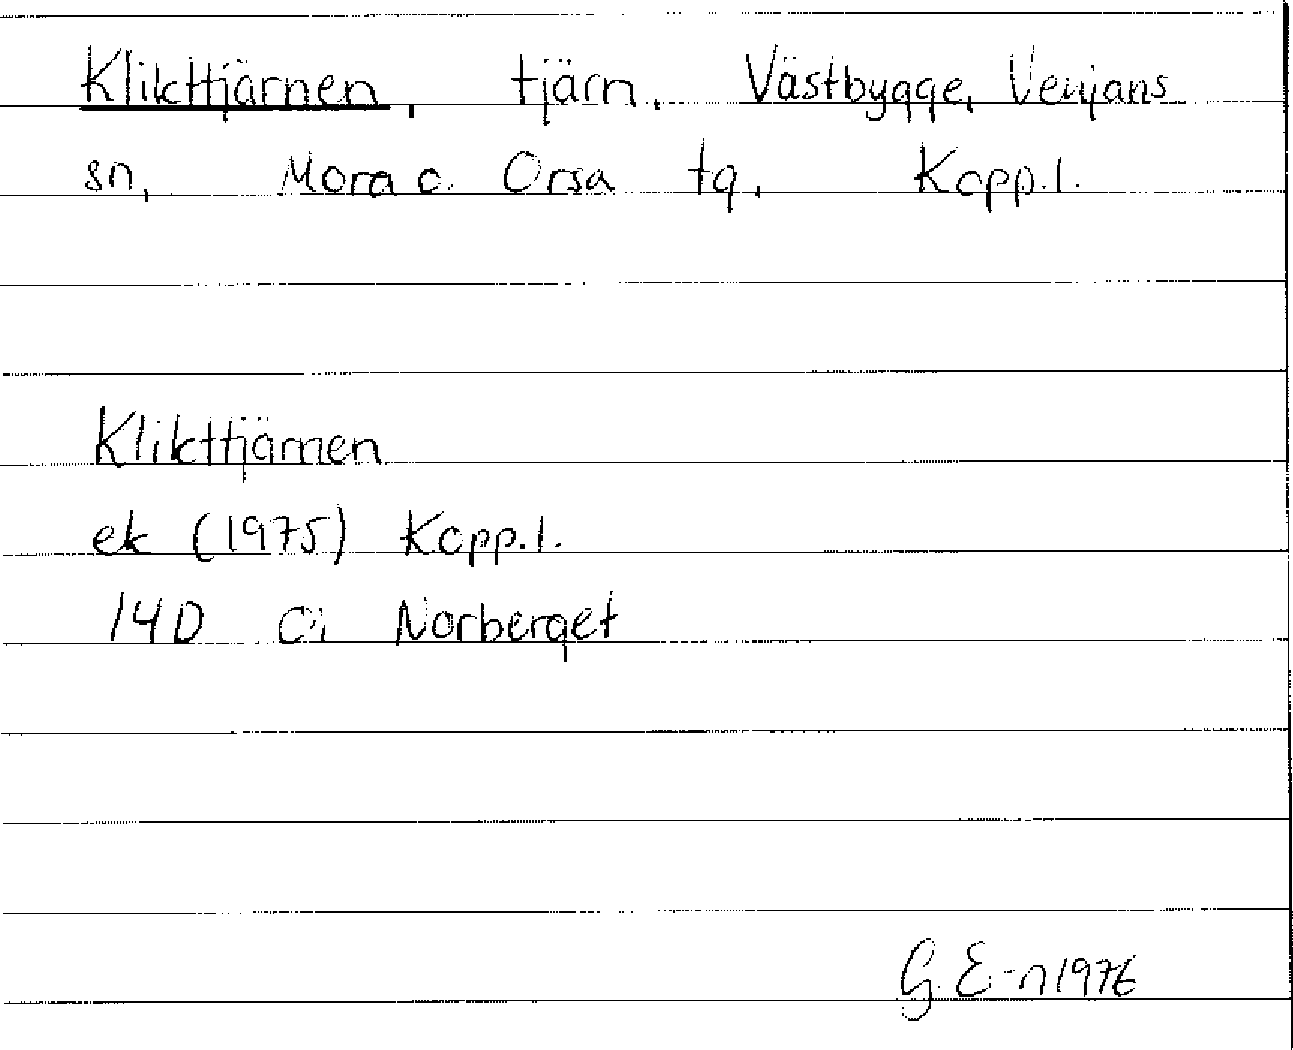 Klikttjärnen, tjärn. Västbygge, Venjans
sn, Mora o. Orsa tg, Kopp.l.
Klikttjärnen
ek (1975) Kopp.l.
14D Norberget
G. E-n 1976